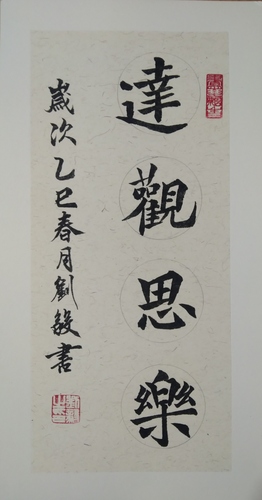 達觀思樂
歲次乙巳春月劉毅書